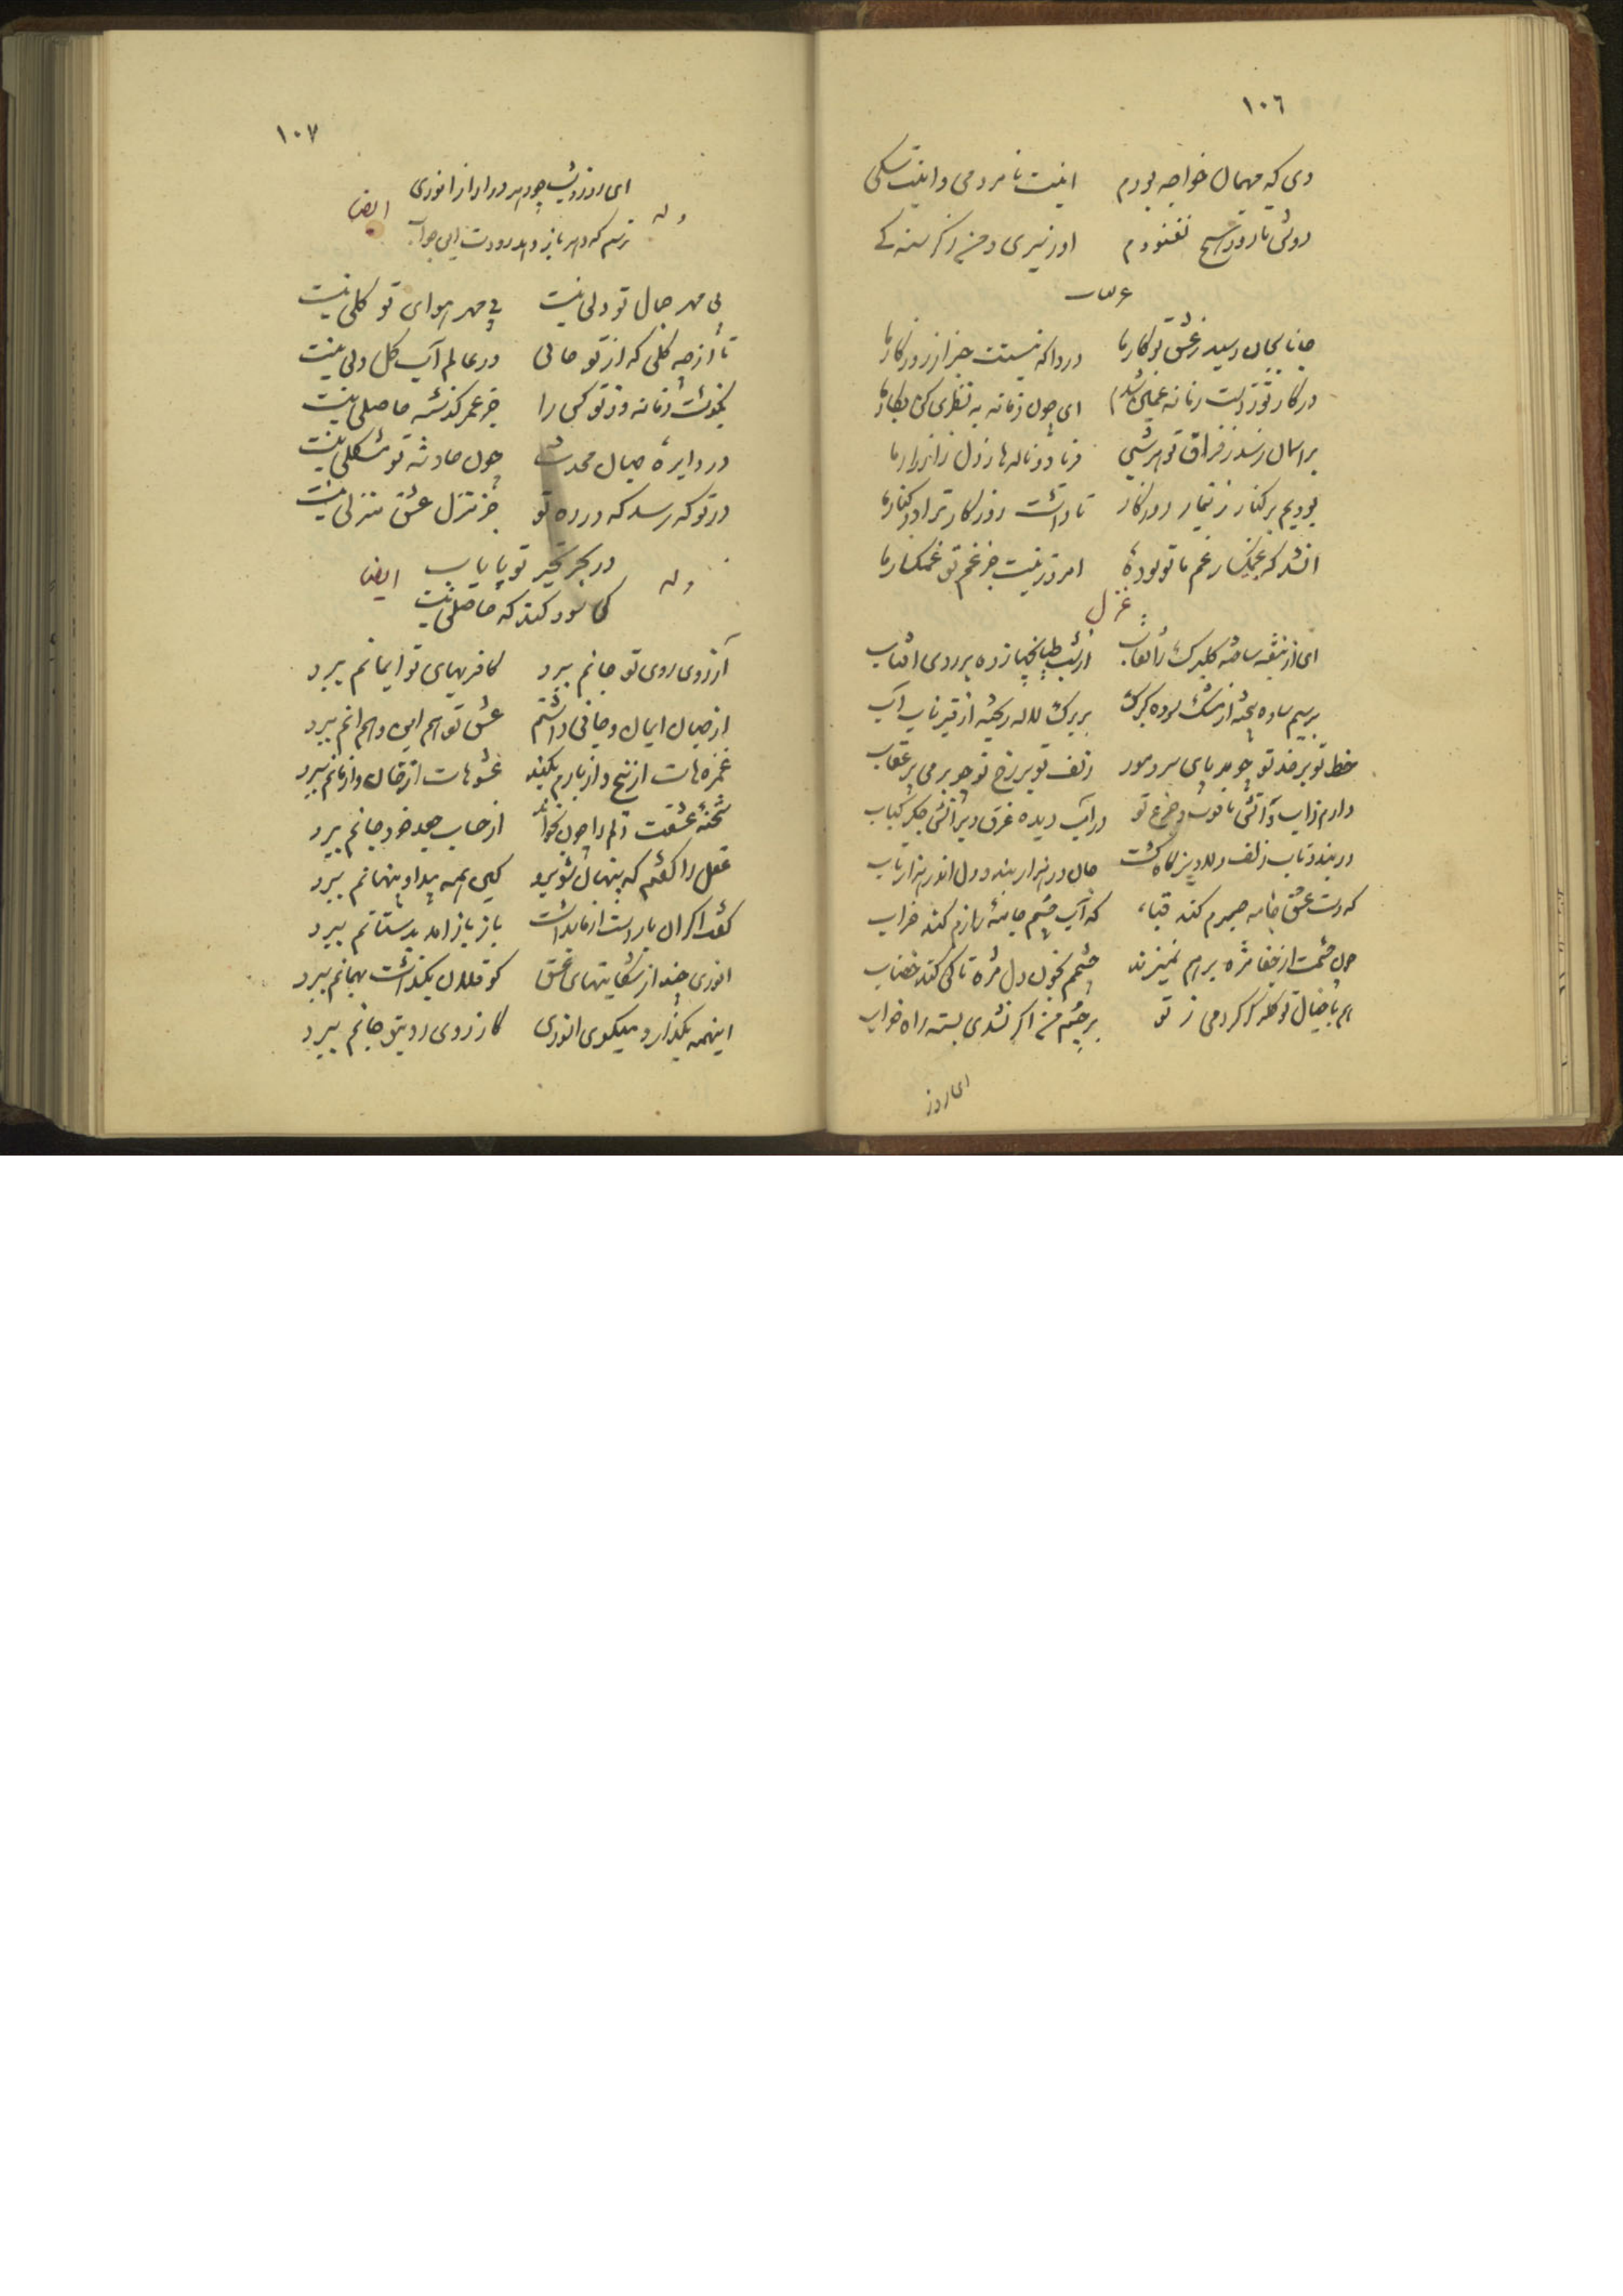 ١٠٦
دی که مهمان خواجه بودم اینت نامردمی و اینت سگی
دوش تا روز هیچ نغنودم او ز سیری و من ز گرسنگی
غزلیات
جانا بجان رسید ز عشق تو کار ما دردا که نیستت خبر از روزگار ما
در کار تو ز دست زمانه غمی شدم ای چون زمانه بد نظری کن بکار ما
بر آسمان رسد ز فراق تو هر شبی فریاد و ناله‌های دل زار زار ما
بودیم بر کنار ز تیمار روزگار تا داشت روزگار ترا در کنار ما
آن شد که غمگسار غم ما تو بوده امروز نیست جز غم تو غمگسار ما
غزل
ای از بنفشه ساخته گلبرگ را نقاب از شب طپانچها زده بر روی آفتاب
بر سیم ساده بیخته از مشک سوده گرد بر برگ لاله ریخته از قیر ناب آب
خط تو بر خد تو چو بر پای مور زلف تو بر رخ تو چو بر می پر عقاب
دارم ز آب و آتش یاقوت و جزع تو در آب دیده غرق و بر آتش جگر کباب
در بند و تاب زلف دلاویز جان در هزار بند و دل اندر هزار تاب
که دست عشق جامه صبرم کند قبا که آب چشم خانه رازم کند خراب
چون چشمت از جفا مژه بر هم نمیزند چشمم بخون دل مژه تا کی کند خضاب
هم با خیال تو گله کردمی ز تو بر چشم من اگر نشدی بسته راه خواب
ای روز
١٠٧
ای روز و شب چو دهر در آزار انوری
وله ایضا
ترسم که دهر باز دهد زودت این جواب
بی مهر جمال تو دلی نیست بی مهر هوای تو گلی نیست
تا از چه گلی که از تو خالی در عالم آب و گل دلی نیست
بگذشت زمانه وز تو کس را جز عمر گذشته حاصلی نیست
در دایره جهان محدث چون حادثه تو مشکلی نیست
در تو که رسد که در ره تو جز منزل عشق منزلی نیست
در بحر تحیر تو پایاب
وله ایضا
کی سود کند که ساحلی نیست
آرزوی روی تو جانم ببرد کافریهای تو ایمانم ببرد
از جهان ایمان و جانی داشتم عشق تو هم این و هم آنم ببرد
غمزه‌هات از بیخ و از بارم بکند عشوهات از خان و از مانم ببرد
شحنه عشقت دلم را چون بخواند از حساب جانم ببرد
عقل را گفتم که پنهان شو برو کین همه پیدا و پنهانم ببرد
گفت اگر این بار دست از ما بداشت باز باز آمد بدستانم ببرد
انوری چند از شکایتهای عشق کو فلان بگذاشت بهمانم ببرد
اینهمه بگذار و میگوی انوری کارزوی روی تو جانم ببرد